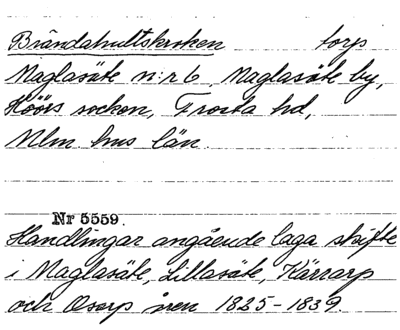 Brändahultskroken torp
Maglasäte n:r 6, Maglasäte by,
Höörs socken, Frosta hd,
Mlm hus län.
Nr 5559.
Handlingar angående laga skifte
i Maglasäte, Lillasäte, Kärrarp
och Osarp åren 1825-1839.